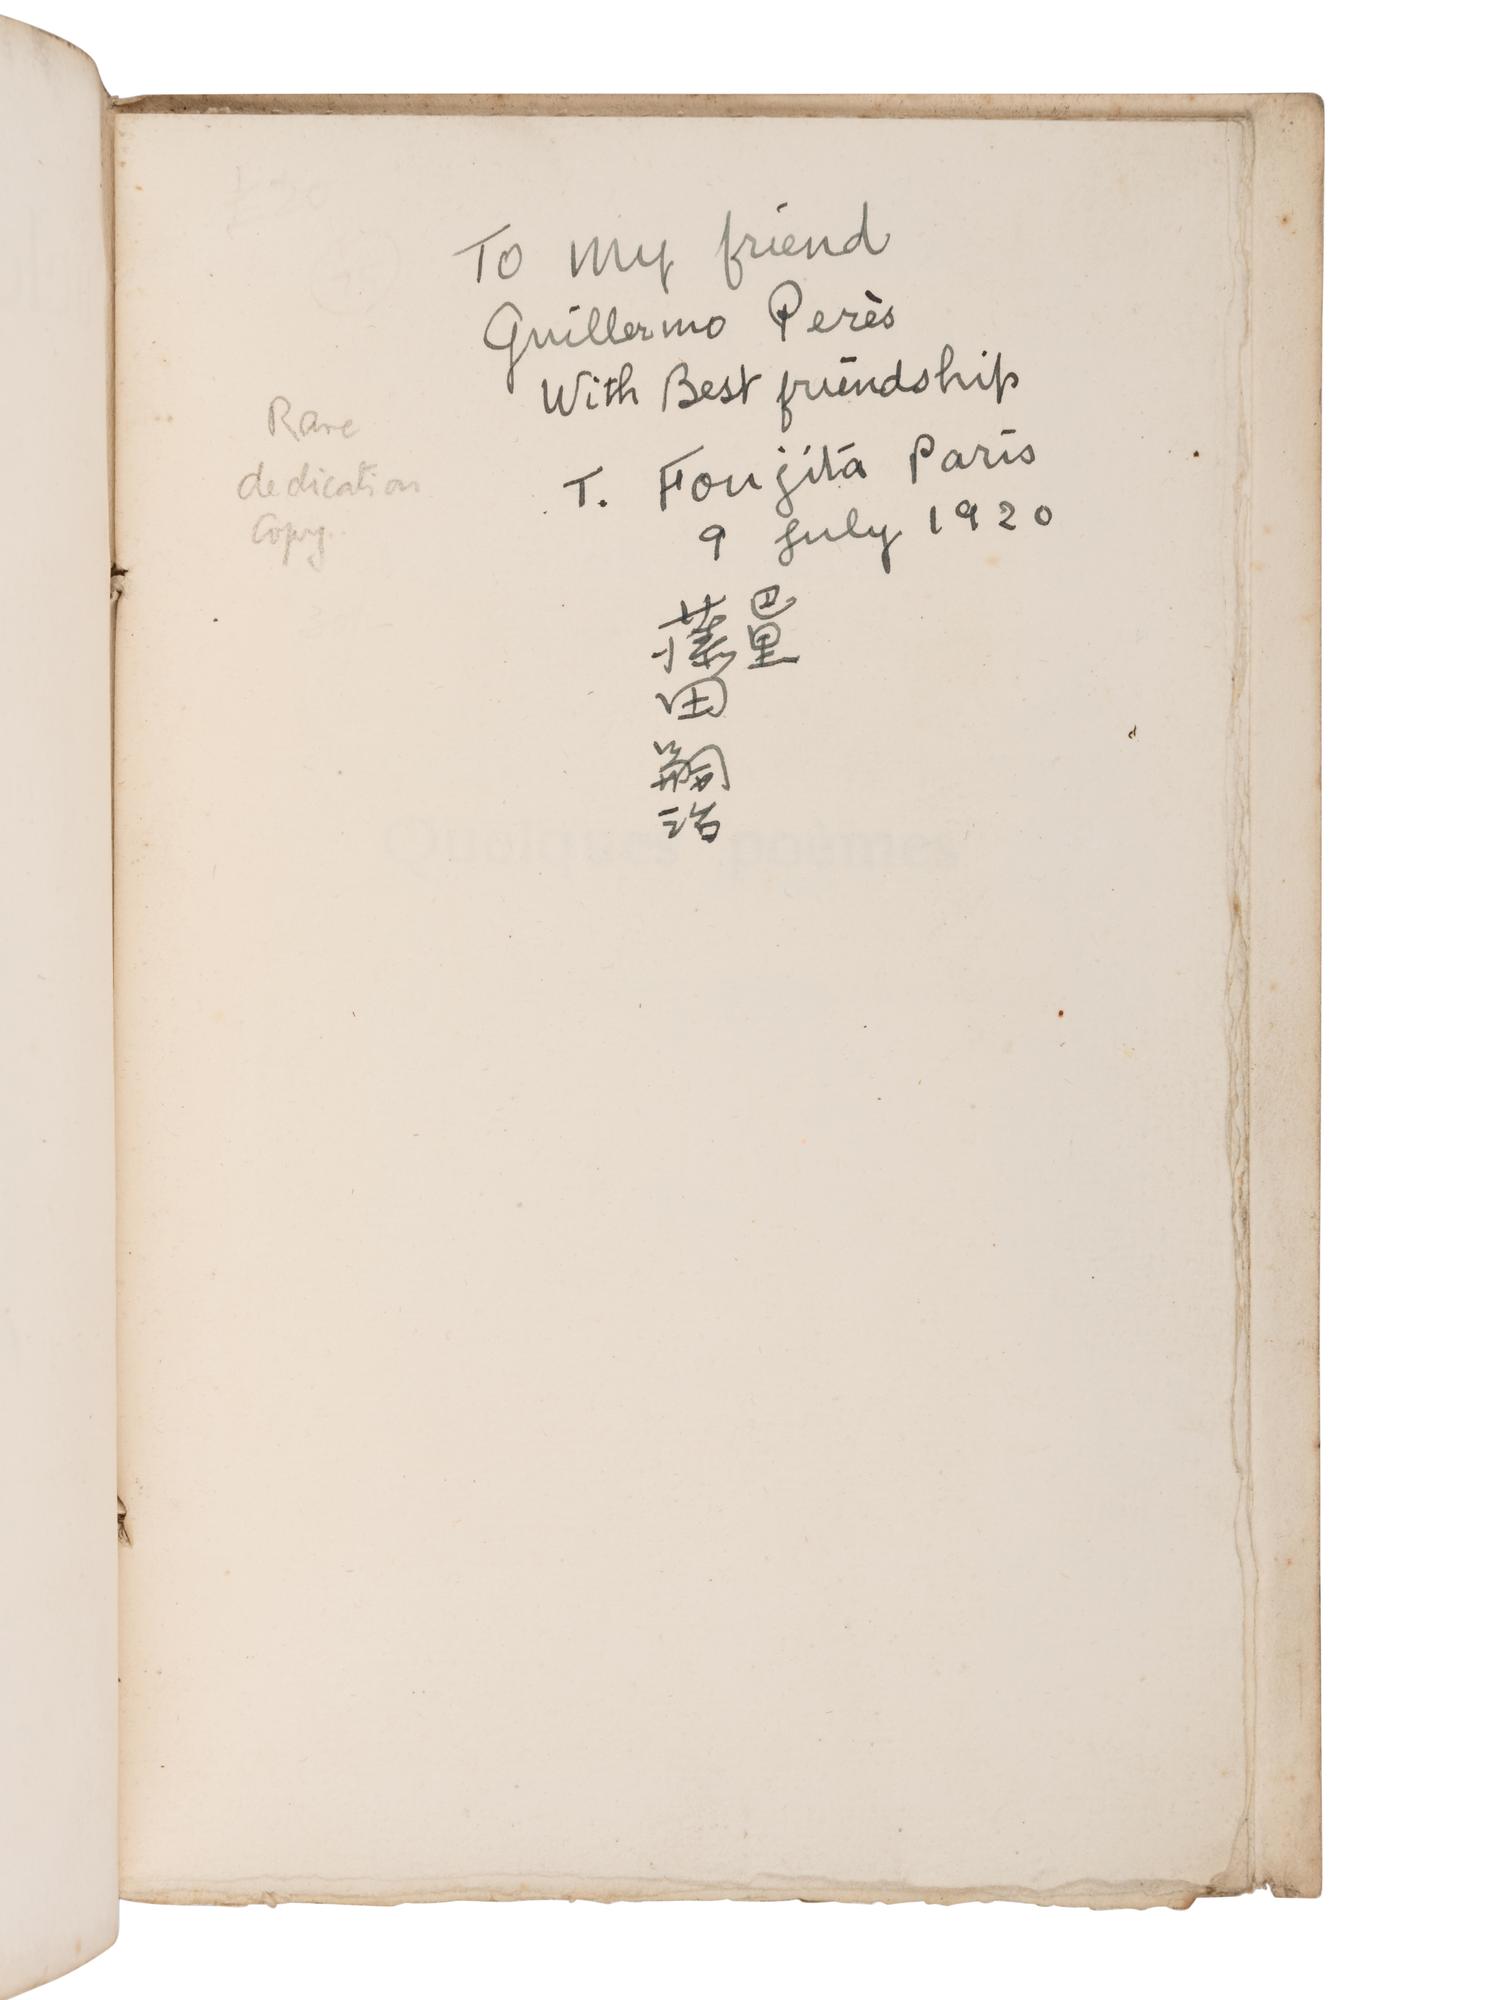 To My friend
Guillermo Perès
With Best friendship
T. Foujita Paris
9 July 1920
巴里
藤田嗣治
Rare
dedication
Copy.
Quelques poèmes